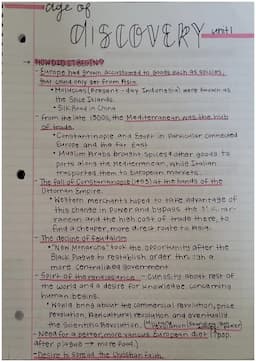 age of
DISCOVERY unit 1
→ HOW DID IT BEGIN?
- Europe had grown accustomed to goods such as spices,
that could only get from Asia.
• Moluccas (present-day Indonesia) were known as
the Spice Islands.
• Silk Road in China
From the late 1300s, the Mediterranean was the hub
of trade.
• Constantinople and Egypt in particular connected
Europe and the far East
• Muslim Arabs brought spices & other goods to
ports along the Mediterranean, while Italian
transported them to European markets.
- The fall of Constantinople (1453) at the hands of the
Ottoman Empire.
• Western merchants hoped to take advantage of
this change in power and bypass the Mediter-
ranean and the high cost of trade there, to
find a cheaper, more direct route to Asia.
- The decline of feudalism
• "New Monarchs" took the opportunity after the
Black Plague to reestablish order through a
more centralized government
- Spirit of the renaissance - Curiosity about rest of
the world and a desire for knowledge concerning
human beings.
• Would bring about the commercial revolution, price
revolution, agricultural revolution, and eventually
the Scientific Revolution.
- Need for a better, more various European diet (↑ pop.
after plague → more food).
- Desire to spread the Christian faith.